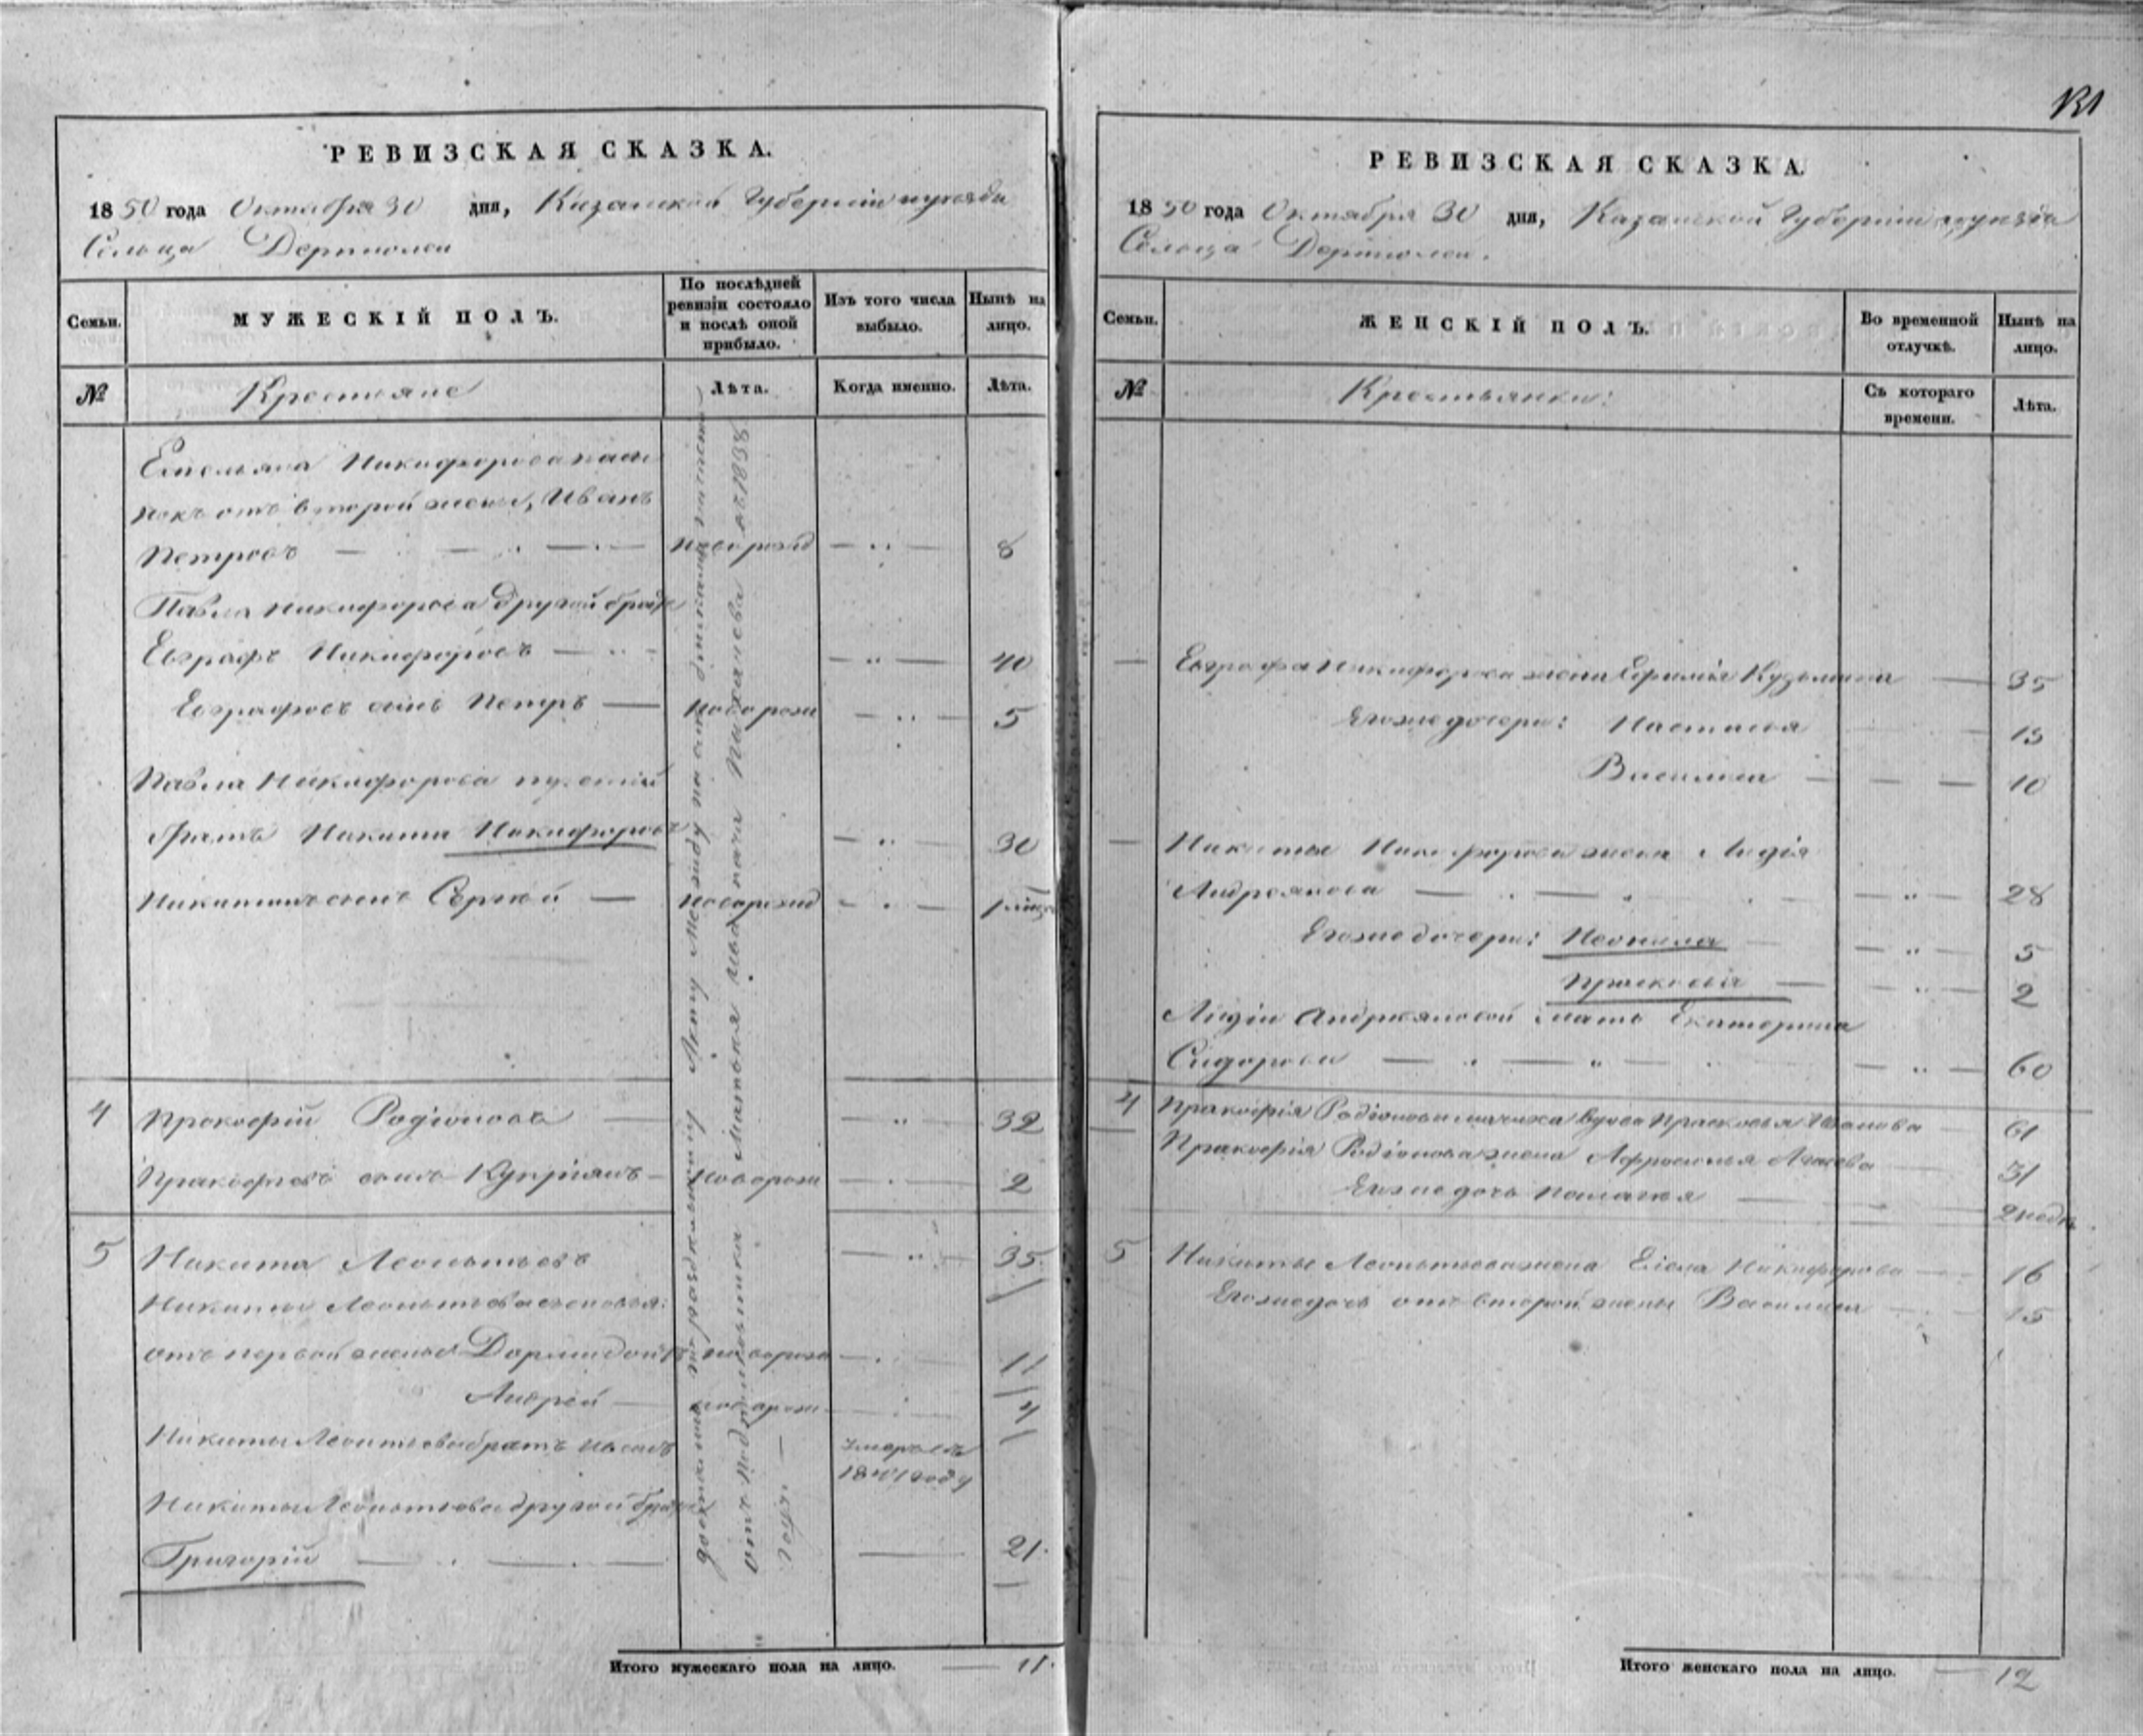 РЕВИЗСКАЯ СКАЗКА.
1850 года Октября 30 дня, Казанской Губернии и уезда
Сельца Дертюлей
Семьи. МУЖЕСКІЙ ПОЛЪ. По послѣдней ревизіи состояло и послѣ оной прибыло. Изъ того числа выбыло. Нынѣ на лицо.
№ Крестьяне Лѣта. Когда именно. Лѣта.
Емельяна Никифорова пасы
нокъ отъ второй жены, Иванъ
Петровъ — новорожд — 8
Павла Никифорова другой братъ
Евграфъ Никифоровъ — 40
Евграфовъ сынъ Петръ — новорож — 5
Павла Никифорова третій
братъ Никита Никифоровъ — 30
Никитинъ сынъ Сергѣй — новорожд — 1
4 Прокофій Родіоновъ — 32
Прокофьевъ сынъ Купріянъ — новорож — 2
5 Никита Леонтьевъ — 35
Никиты Леонтьева сыновья:
отъ первой жены Дормидонтъ новорож — 11
Андрей — новорож — 4
Никиты Леонтьева братъ умеръ въ
1841 году
Никиты Леонтьева другой братъ
Григорій — 21.
отъ Подполковника 1838
году. —
Итого мужескаго пола на лицо. — 11.
РЕВИЗСКАЯ СКАЗКА.
1850 года Октября 30 дня, Казанской Губерніи и уезда
Сельца Дертюлей.
Семьи. ЖЕНСКІЙ ПОЛЪ. Во временной отлучкѣ. Нынѣ на лицо.
№ Крестьянки: Съ котораго времени. Лѣта.
— Евграфа Никифорова жена Ефимія Кузьмина — 35
Егоже дочери: Настасья 13
Василиса — 10
— Никиты Никифорова жена Лидія
Андреянова — 28
Егоже дочери: Неонила — 5
Прасковья — 2
Лидіи Андреяновой мать Екатерина
Сидорова — 60
4 Прокофія Родіонова мачиха вдова Прасковья Иванова 61
Прокофія Родіонова жена Афросинья 31
Егоже дочь Палагея — 2 недѣ
5 Никиты Леонтьева жена Никифорова 16
Егоже дочь отъ второй жены Василиса 15
Итого женскаго пола на лицо. — 12